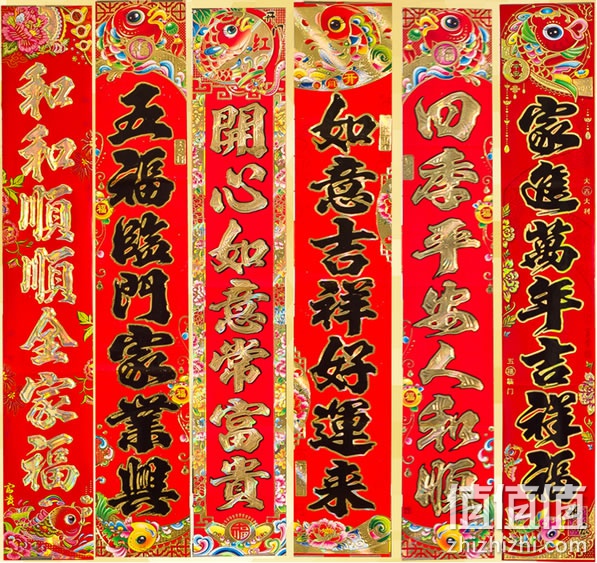 和和順順全家福
五福臨門家業興
開心如意常富貴
如意吉祥好運来
四季平安人和順
家進萬年吉祥福
红
开
福
福
大六大利
五福臨门
值值值
zhizhizhi.com